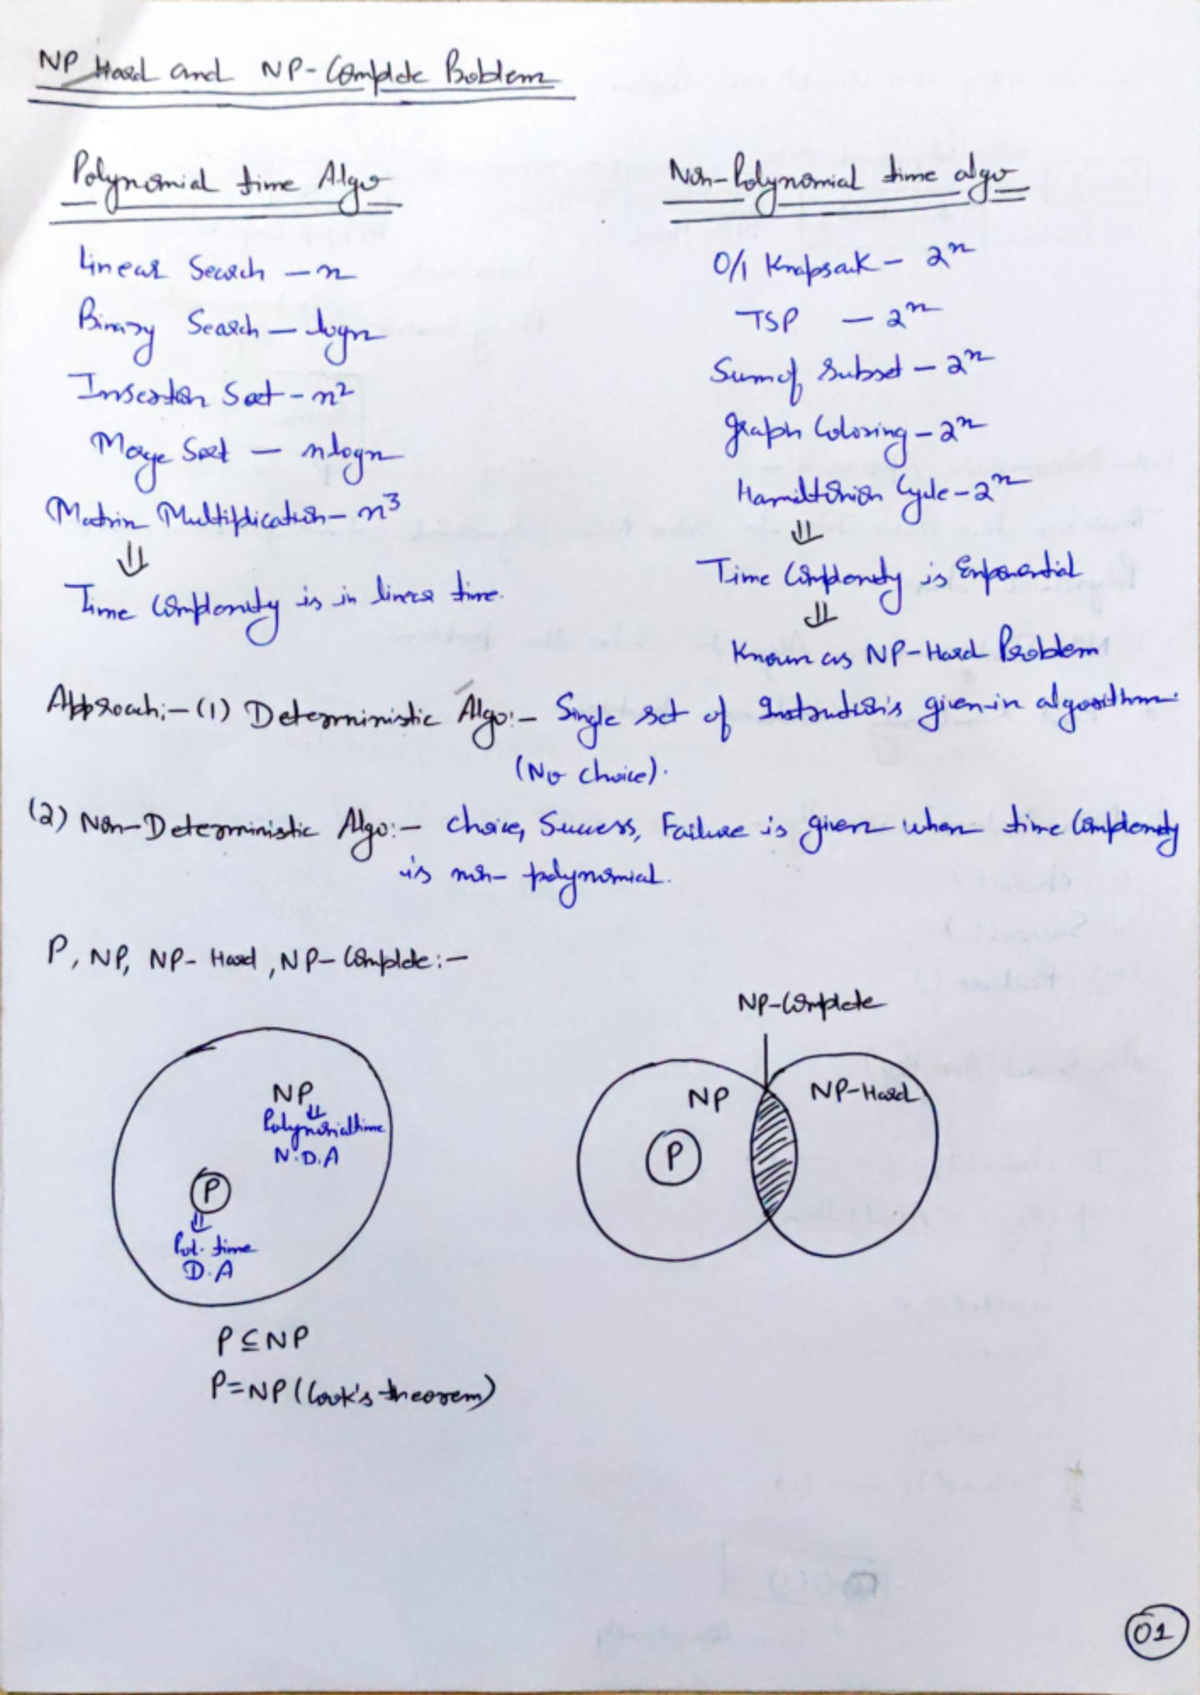 NP Hard and NP-Complete Problem
Polynomial time Algo
Linear Search – n
Binary Search – logn
Insertion Sort – n²
Merge Sort – nlogn
Matrix Multiplication – n³
⇓
Time Complexity is in linear time.
Non-Polynomial time algo
0/1 Knapsack – 2ⁿ
TSP – 2ⁿ
Sum of Subset – 2ⁿ
graph Coloring – 2ⁿ
Hamiltonian Cycle – 2ⁿ
⇓
Time Complexity is Exponential
⇓
Known as NP-Hard Problem
Approach:– (1) Deterministic Algo:– Single set of Instructions given in algorithm.
(No choice).
(2) Non-Deterministic Algo:– choice, Success, Failure is given when time Complexity
is non-polynomial.
P, NP, NP-Hard, NP-Complete:–
NP
⇓
Polynomial time
N.D.A
P
⇓
Pol. time
D.A
P ⊆ NP
P=NP (Cook's theorem)
NP-Complete
NP
NP-Hard
P
01